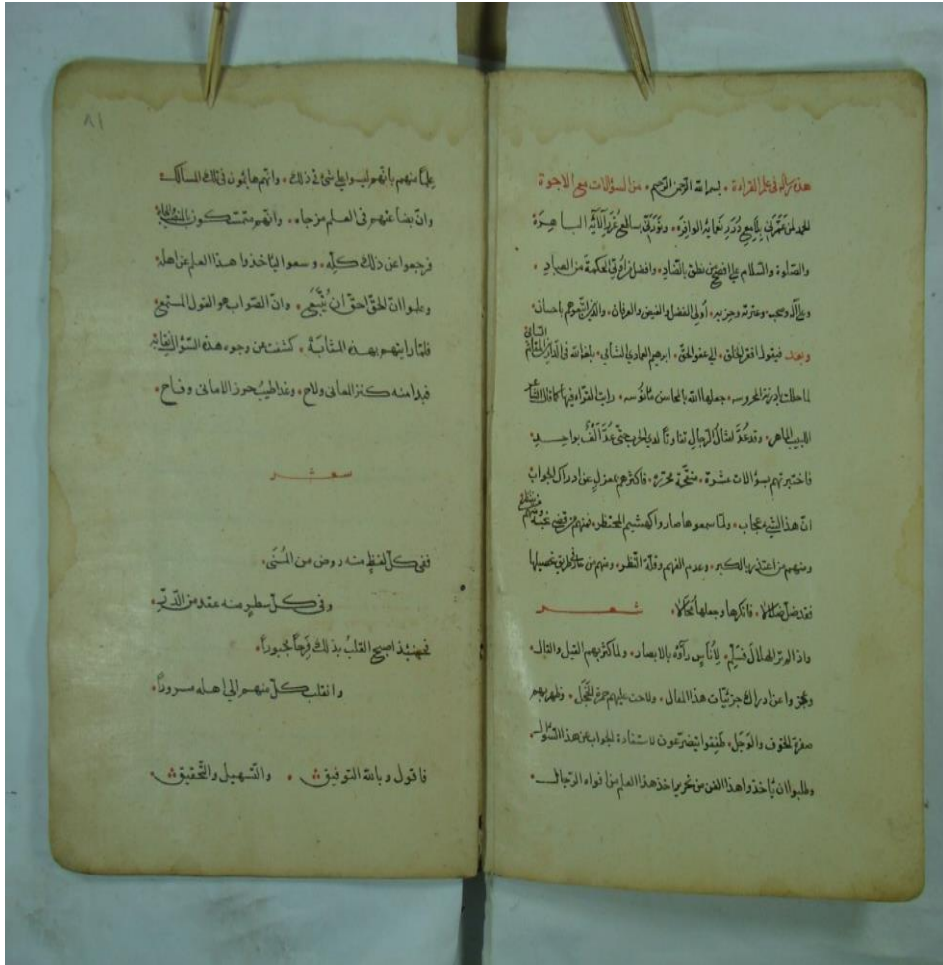 هذه رسالة في علم القراءة • بسم الله الرحمن الرحيم • من السؤالات مع الاجوبة
الحمد لمن غمرني بلامع درر نعمائه الوافرة • ونورني بساطع غرر آلائه الباهرة
والصلوة والسلام على افصح من نطق بالضاد • وافضل من اوتي الحكمة من العباد •
وعلى آله وصحبه وعترته وحزبه • أولي الفضل والفيض والعرفان • والذين اتبعوهم باحسان •
وبعد فيقول افقر الخلق • الى عفو الحق • ابرهيم العمادي الشامي • بلغه الله في الدارين المقام السامي
لما حللت بادرنة المحروسه • جعلها الله بالمحاسن مأنوسه • رايت القراء فيها كما قال الشاعر
اللبيب الماهر • وقد عد امثال الرجال تفاوتا لدى الحرب حتى عد ألف بواحد •
فاختبرتهم بسؤالات عشرة • منقحة محررة • فاكثرهم بمعزل عن ادراك الجواب
ان هذا الشيء عجاب • ولما سمعوها صاروا كهشيم المحتظر • فمنهم من قضى نحبه ومنهم من ينتظر
ومنهم من اعتذر بالكبر • وعدم الفهم وقلة النظر • ومنهم من طريق تحصيلها
فقد ضل ضلالا • فانكرها وجعلها محالا • شعر
واذا لم تر الهلال فسلم • لأناس رأوه بالابصار • ولما كثر بهم القيل والقال •
وعجزوا عن ادراك جزئيات هذا المقال • ولاحت عليهم حمرة الخجل • وظهر بهم
صفرة الخوف والوجل • طفقوا يتضرعون لاستفادة الجواب عن هذا السؤال •
وطلبوا ان ياخذوا هذا الفن من نحرير اخذ هذا العلم من افواه الرجال •
٨١
علما منهم بانهم ليسوا على شئ في ذلك • وانهم هائمون في تلك المسالك •
وان بضاعتهم في العلم مزجاه • وانهم متمسكون
فرجعوا عن ذلك كله • وسعوا لياخذوا هذا العلم عن اهله
وعلموا ان الحق احق ان يتبع • وان الصواب هو القول المستمع
فلما رايتهم بهذه المثابة • كشفت عن وجوه هذه السؤالات نقابه
فبدا منه كنز المعاني ولاح • وغدا طيب حرز الاماني وفاح •
شعر
ففي كل لفظ منه روض من المنى •
وفي كل سطر منه عقد من الدر •
فحينئذ اصبح القلب بذلك فرحا مجبورا •
وانقلب كل منهم الى اهله مسرورا •
فاقول وبالله التوفيق • والتسهيل والتحقيق •